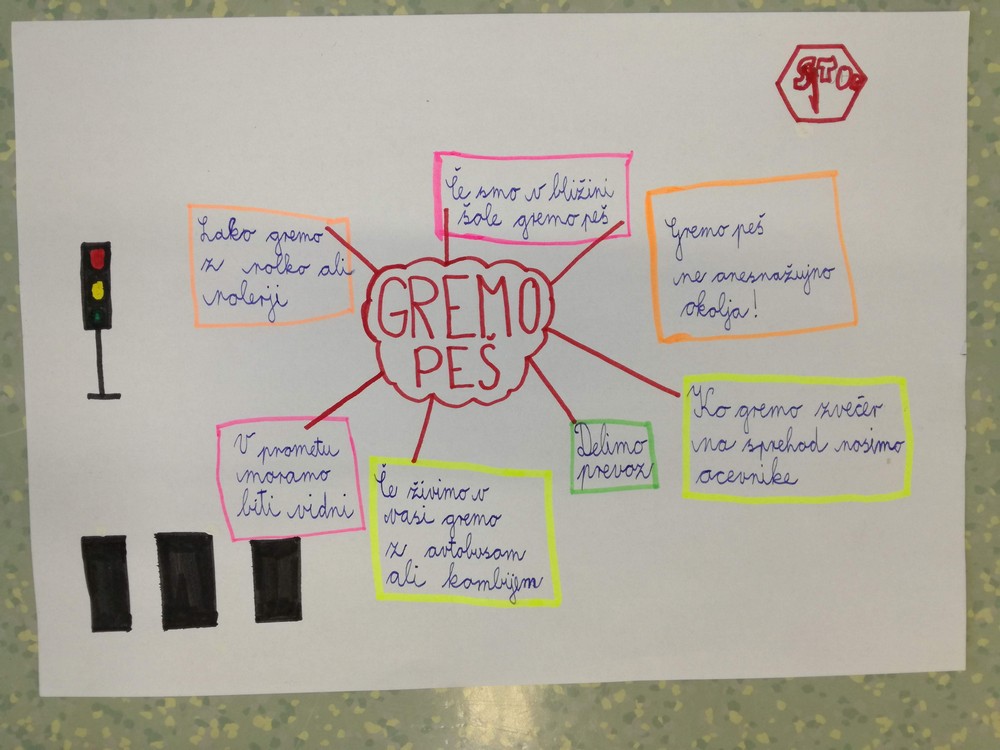 STOP
Če smo v bližini
šole gremo peš
Lako gremo
z rolko ali
rolerji
Gremo peš
ne onesnažujno
okolja!
GREMO
PEŠ
Ko gremo zvečer
na sprehod nosimo
acevnike
Delimo
prevoz
V prometu
moramo
biti vidni
Če živimo v
vasi gremo
z avtobusam
ali kombijem